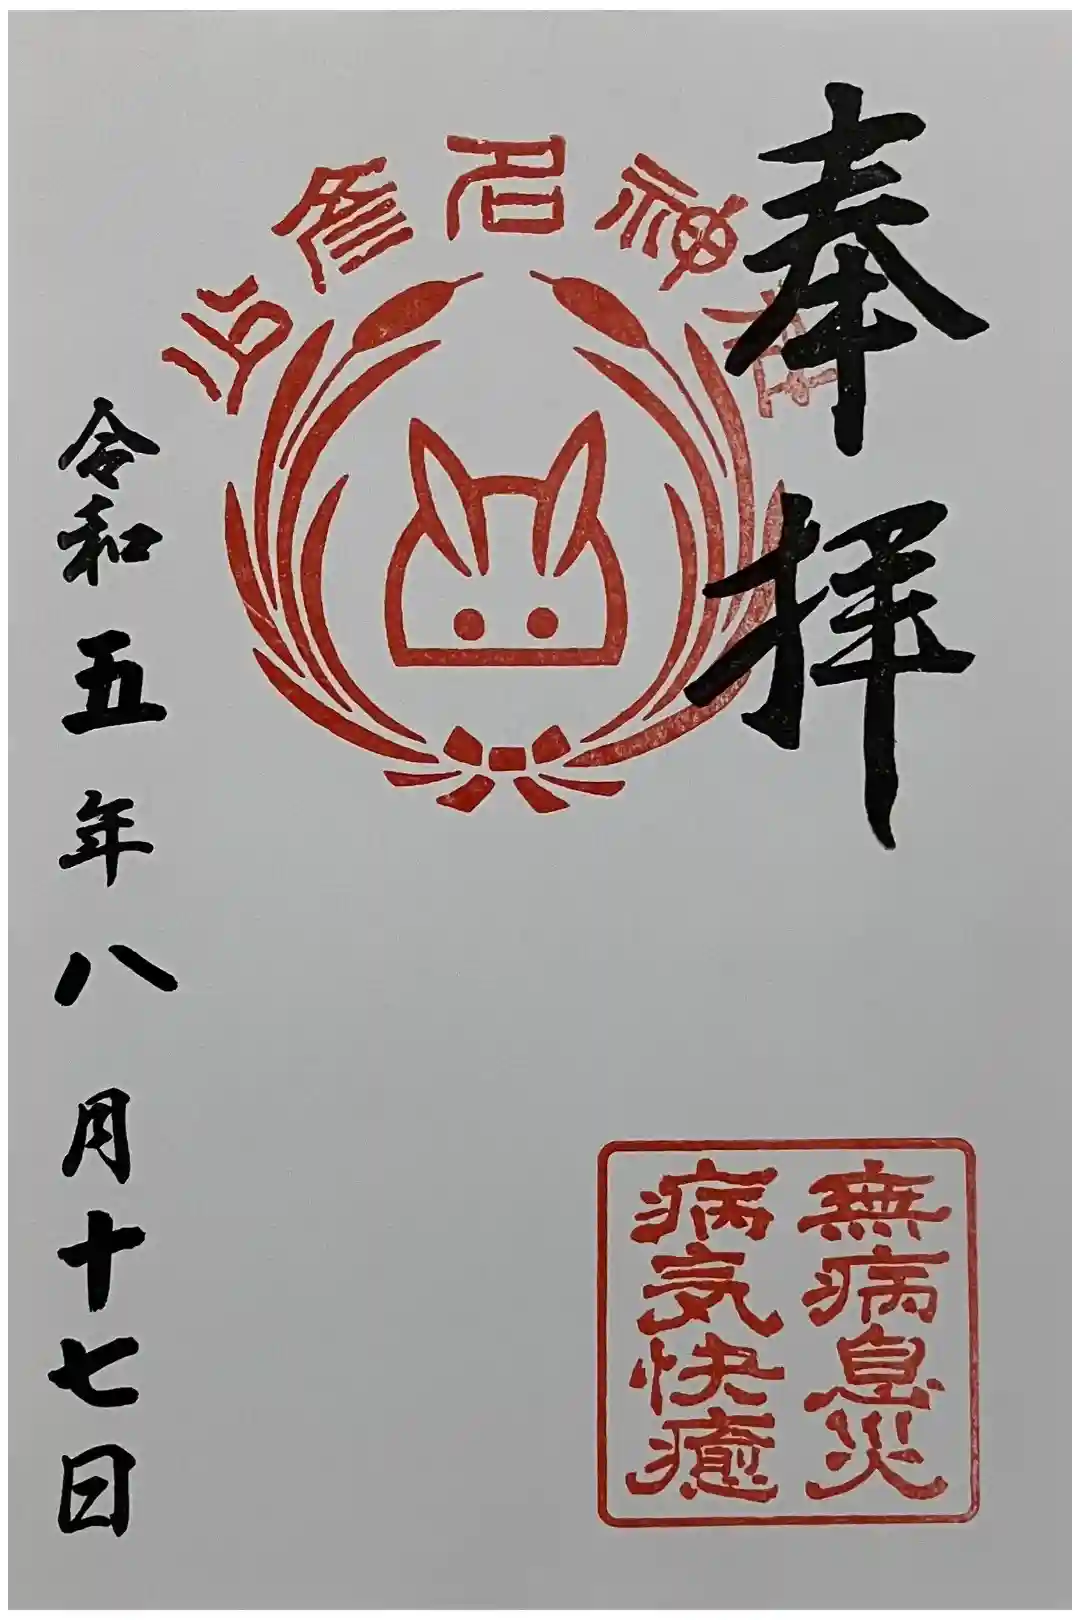 奉拝
少彦名神社
無病息災
病気快癒
令和五年八月十七日